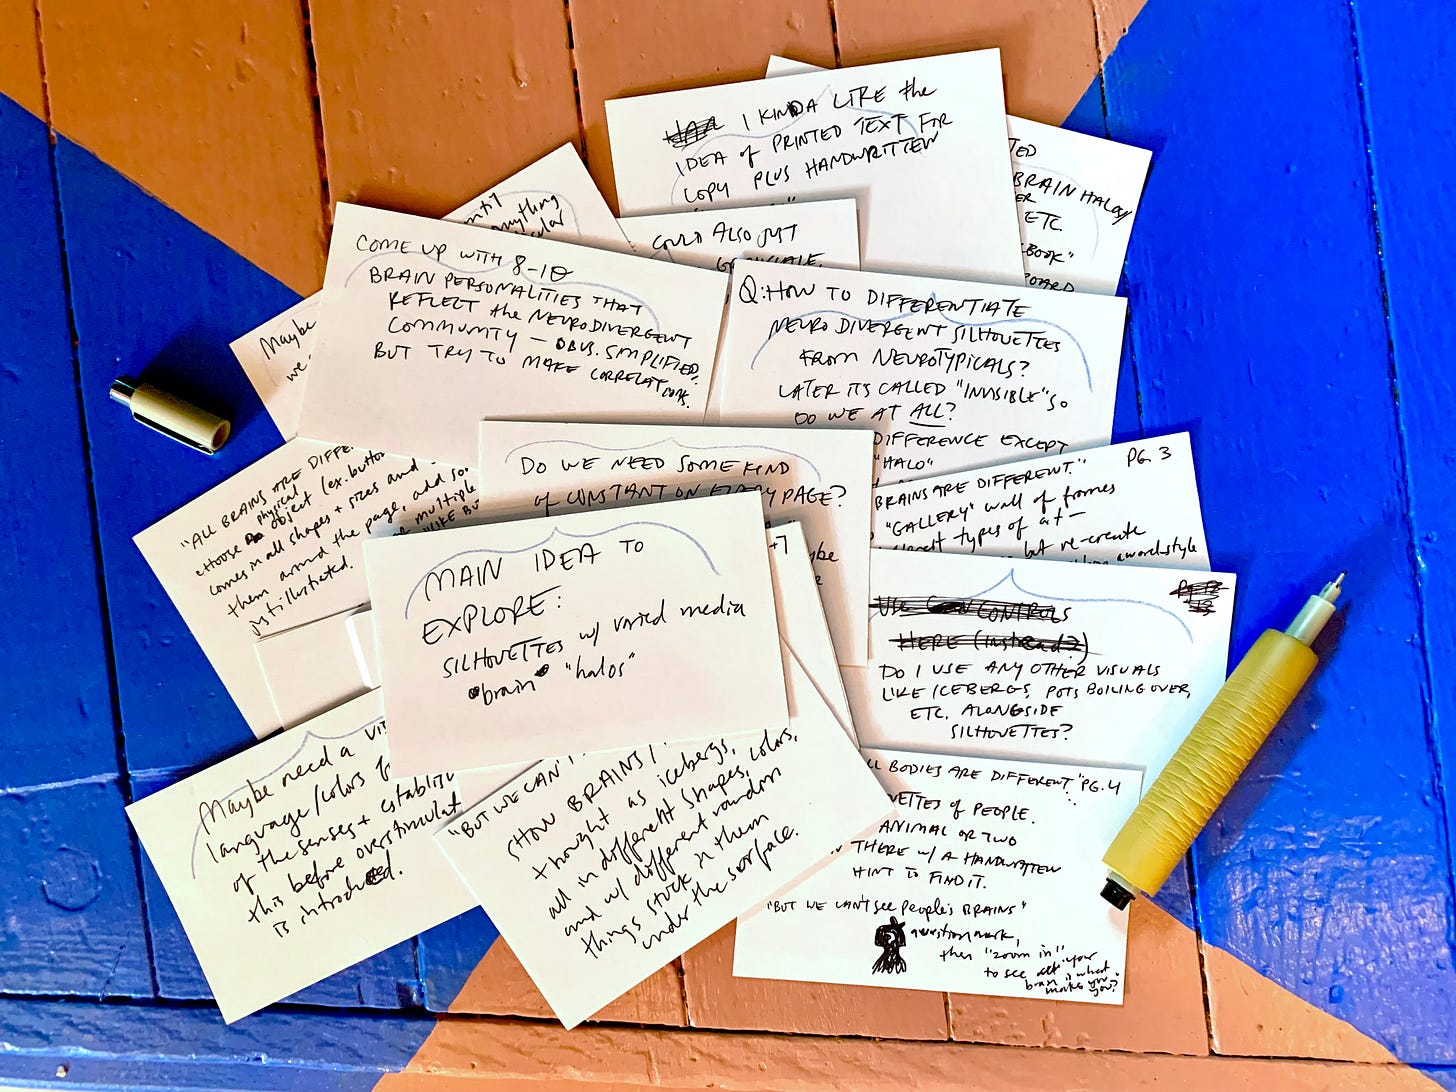 I KINDA LIKE the
IDEA of PRINTED TEXT FOR
COPY PLUS HANDWRITTEN
TED
BRAIN HALOS/
ER
ETC
BOOK"
BOARD
until
anything
COULD ALSO JUST
GRAYSCALE,
COME UP WITH 8-10
BRAIN PERSONALITIES THAT
REFLECT the NEURODIVERGENT
COMMUNITY — OBVS. SIMPLIFIED,
BUT TRY TO MAKE CORRELATIONS.
Q: HOW TO DIFFERENTIATE
NEURODIVERGENT SILHOUETTES
FROM NEUROTYPICALS?
LATER ITS CALLED "INVISIBLE" SO
DO WE AT ALL?
DIFFERENCE EXCEPT
"HALO"
Maybe
we
"ALL BRAINS ARE DIFFE
choose physical
object (ex. button
comes in all shapes + sizes and
them around the page, add so
of multiple
just illustrated.
"LIKE BU
DO WE NEED SOME KIND
of CONSTANT ON EVERY PAGE?
PG. 3
BRAINS ARE DIFFERENT."
"GALLERY" wall of frames
different types of art —
but re-create
MAIN IDEA TO
EXPLORE:
SILHOUETTES w/ varied media
"brain" "halos"
USE CONTROLS
HERE (instead?)
DO I USE ANY OTHER VISUALS
LIKE ICEBERGS, POTS BOILING OVER,
ETC. ALONGSIDE
SILHOUETTES?
Maybe need a vi
language/colors f
of the senses + establis
this before overstimulat
is introduced.
"BUT WE CAN'T
SHOW BRAINS/
thought as icebergs,
all in different shapes, colors,
and w/ different random
things stuck in them
under the surface.
LL BODIES ARE DIFFERENT" PG. 4
ETTES of PEOPLE.
ANIMAL OR TWO
THERE w/ A HANDWRITTEN
HINT TO FIND IT.
"BUT WE CAN'T see people's BRAINS"
question mark,
then "zoom in"
to see "your
brain is what
makes you
you?"